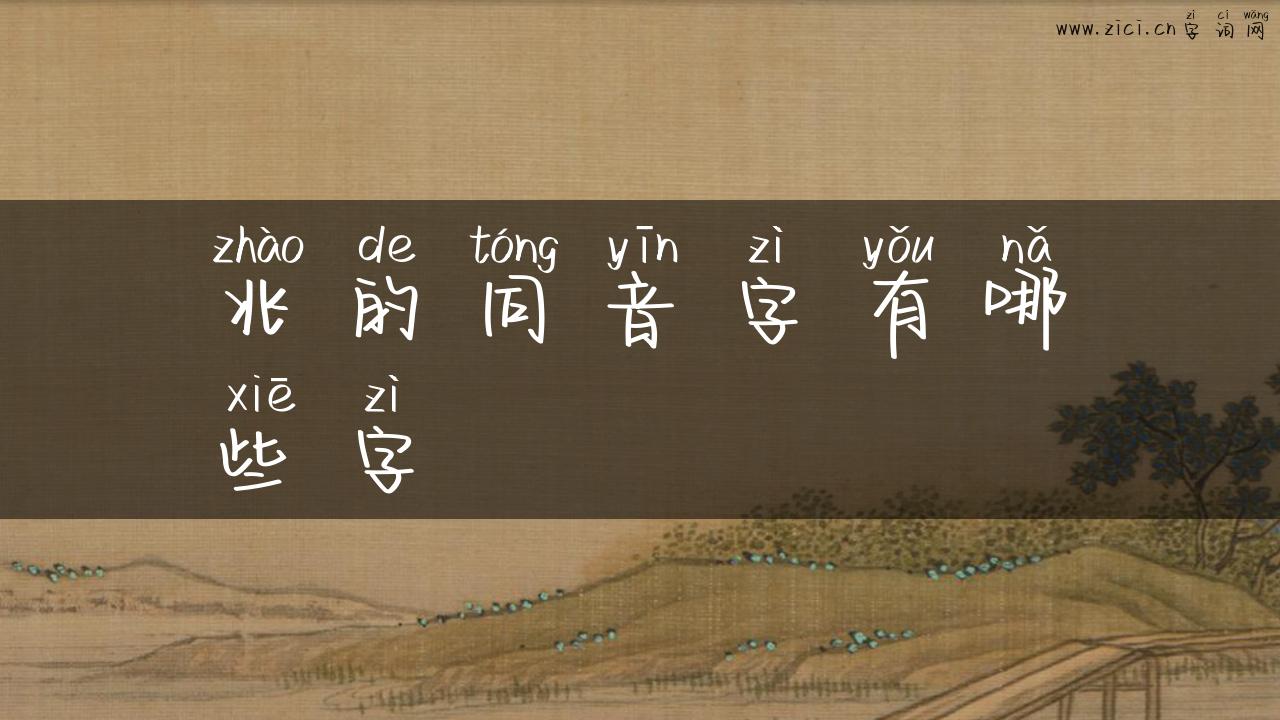 zì cí wǎng
www.zici.cn 字 词 网
zhào de tóng yīn zì yǒu nǎ
兆 的 同 音 字 有 哪
xiē zì
些 字